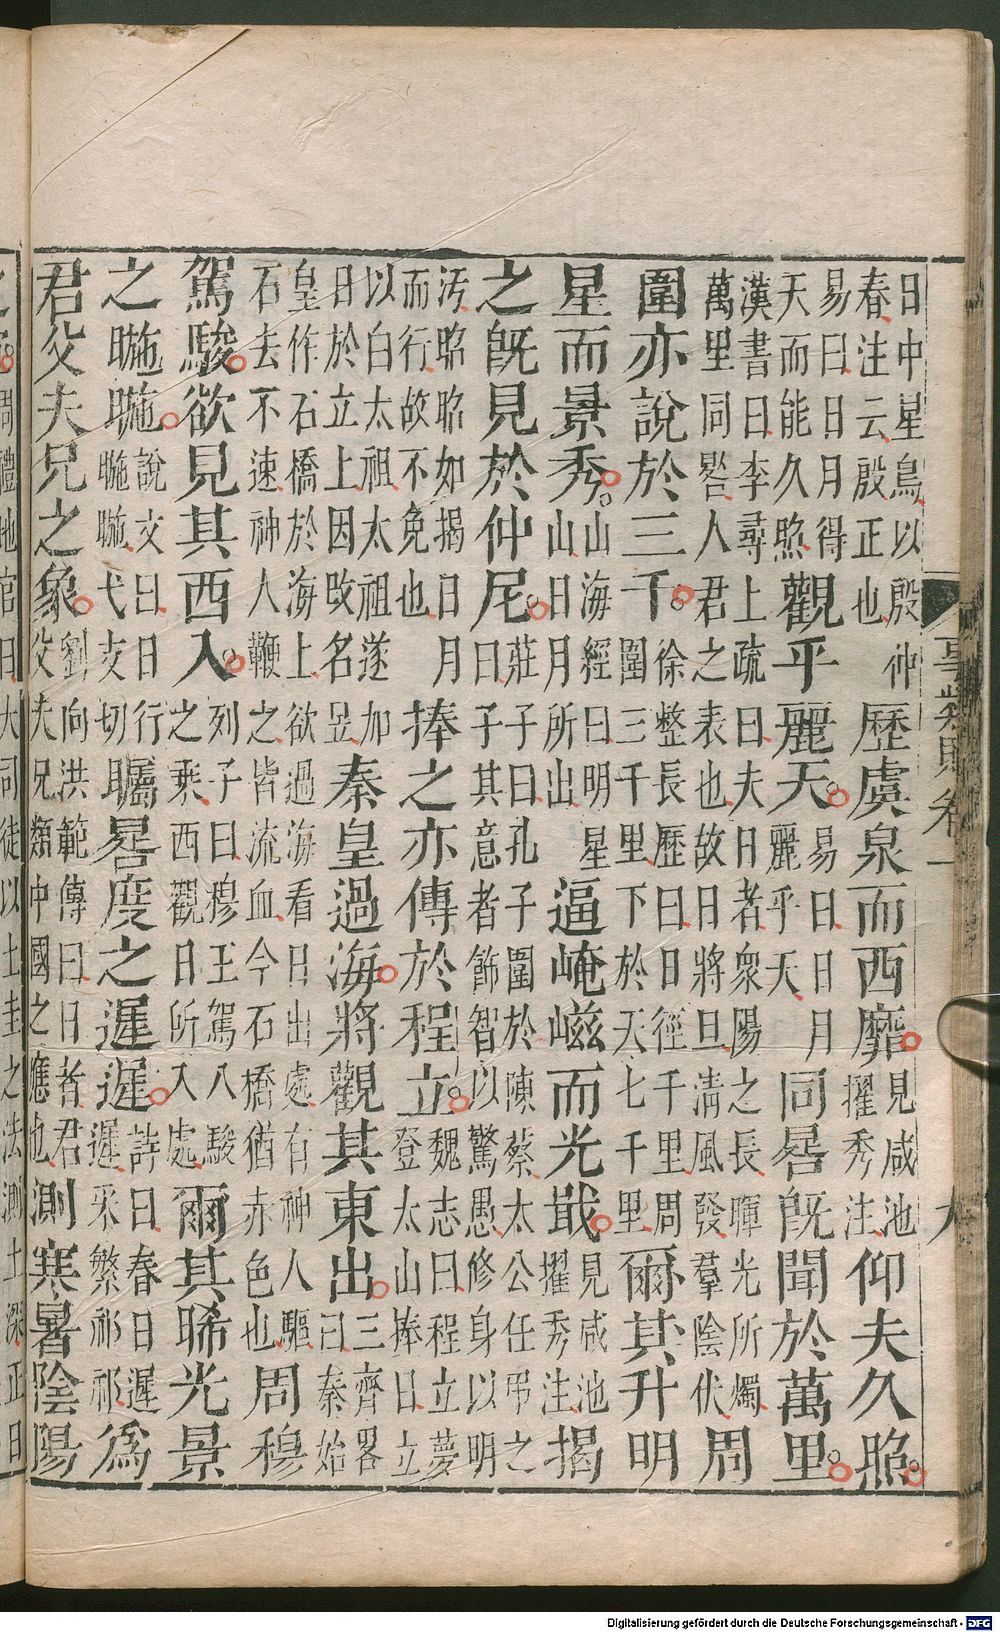 事類賦卷一
日中星鳥以殷仲
春注云殷正也
歷虞泉而西靡
見咸池
擢秀注
仰夫久照
易曰日月得
天而能久照
觀乎麗天
易曰日月
麗乎天
同晷既聞於萬里
漢書曰李尋上疏曰夫日者衆陽之長暉光所燭
萬里同晷人君之表也故日將旦清風發羣陰伏
周
圍亦說於三千
徐整長歷曰日徑千里周
圍三千里下於天七千里
爾其升明
星而景秀
山海經曰明星
山日月所出
逼崦嵫而光戢
見咸池
擢秀注
揭
之旣見於仲尼
莊子曰孔子圍於陳蔡太公任弔之
曰子其意者飾智以驚愚修身以明
汚昭昭如揭日月
而行故不免也
捧之亦傳於程立
魏志曰程立夢
登太山捧日立
以白太祖太祖遂加
日於立上因改名昱
秦皇過海將觀其東出
三齊畧
曰秦始
皇作石橋於海上欲過海看日出處有神人驅
石去不速神人鞭之皆流血今石橋猶赤色也
周穆
駕駿欲見其西入
列子曰穆王駕八駿
之乘西觀日所入處
爾其晞光景
之暆暆
說文曰日行
暆暆弋支切
矚晷度之遲遲
詩曰春日遲
遲采繁祁祁
為
君父夫兄之象
劉向洪範傳曰日者君
父夫兄類中國之應也
測寒暑陰陽
周禮地官曰大司徒以土圭之法測土深正日
Digitalisierung gefördert durch die Deutsche Forschungsgemeinschaft - DFG